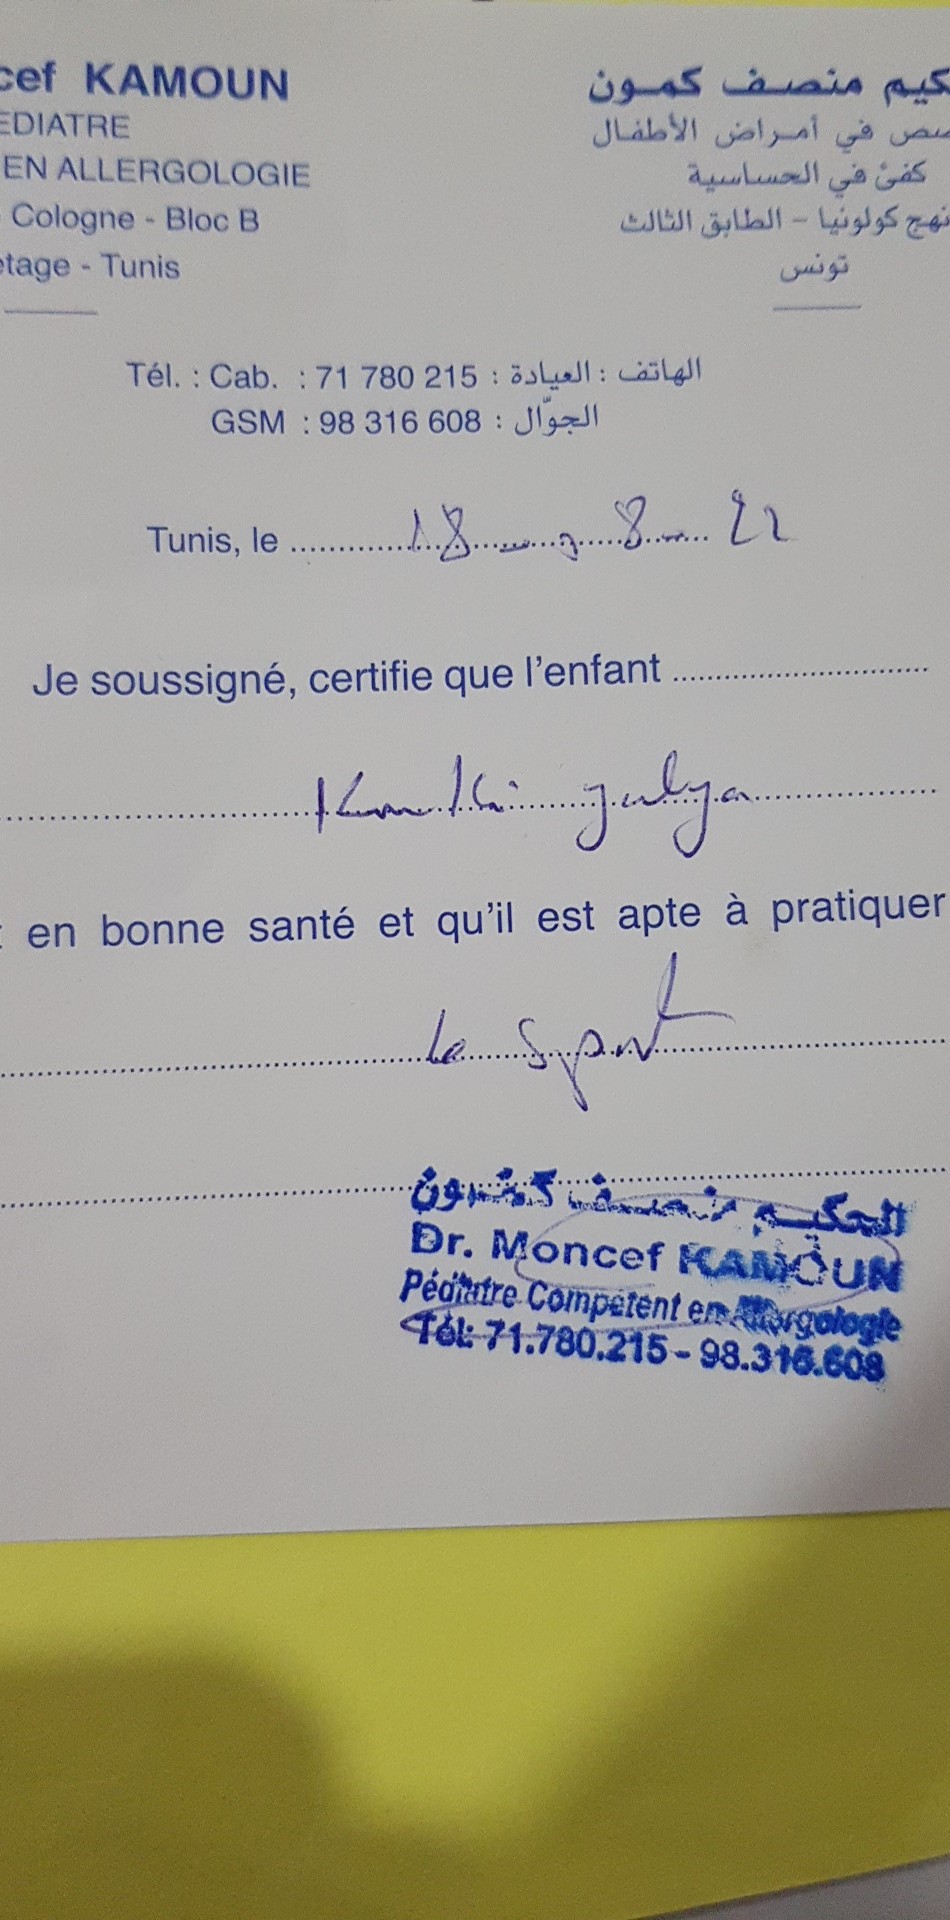 cef KAMOUN
كيم منصف كمون
EDIATRE
صص في أمراض الأطفال
EN ALLERGOLOGIE
كفئ في الحساسية
Cologne - Bloc B
نهج كولونيا - الطابق الثالث
etage - Tunis
تونس
Tél. : Cab. : 71 780 215 : الهاتف : العيادة
GSM : 98 316 608 : الجوّال
Tunis, le 18 8 22
Je soussigné, certifie que l'enfant
en bonne santé et qu'il est apte à pratiquer
le sport
الحكيم منصف كمون
Dr. Moncef KAMOUN
Pédiatre Compétent en Allergologie
Tél: 71.780.215 - 98.316.608